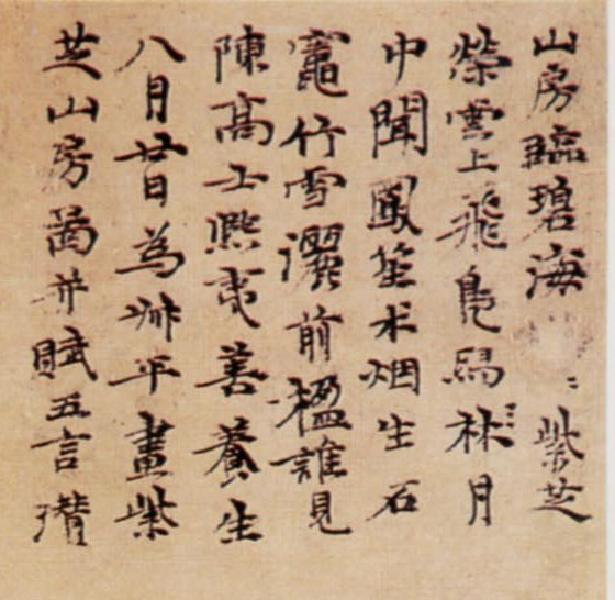 山房臨碧海 紫芝
榮雲上飛鳧舄林月
中聞鳳笙术烟生石
竈竹雪灑前楹誰見
陳高士熙夷善養生
八月廿日為叔平畫紫
芝山房啚并賦五言瓚